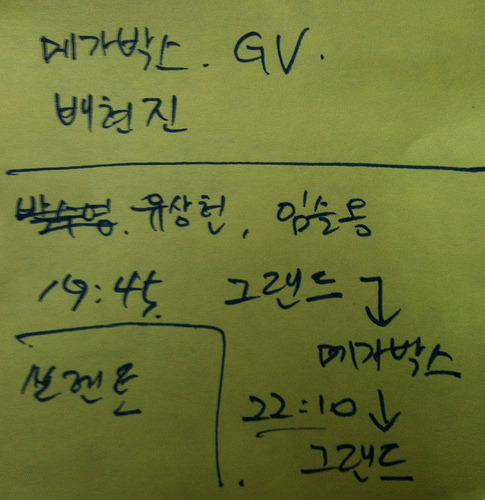 메가박스. GV.
배현진
박수영. 유상헌, 임슬옹
19:45 그랜드
메가박스
22:10
그랜드